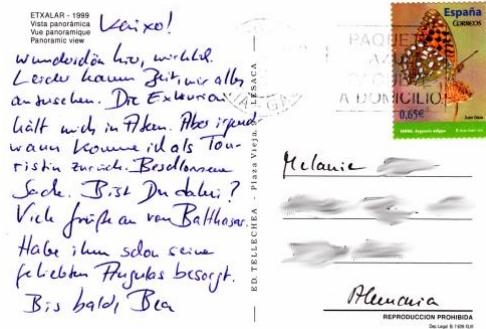 ETXALAR - 1999
Vista panorámica
Vue panoramique
Panoramic view
Kaixo!
wunderschön hier, wirklich.
Leider kaum Zeit, mir alles
anzusehen. Die Exkursion
hält mich in Atem. Aber irgend-
wann komme ich als Tou-
ristin zurück. Beschlossene
Sache. Bist Du dabei?
Viele Grüße an von Balthasar.
Habe ihm schon seine
geliebten Angulas besorgt.
Bis bald, Bea
ED. TELLECHEA - Plaza Vieja, LESACA
PAQUET
AZUL
A DOMICILIO
España
CORREOS
0,65€
Melanie
Alemania
REPRODUCCION PROHIBIDA